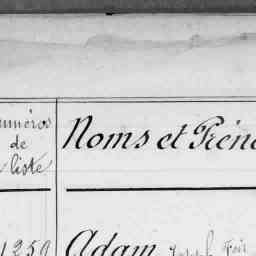 numéros
de
liste
Noms et Préno
1250
Adam Joseph